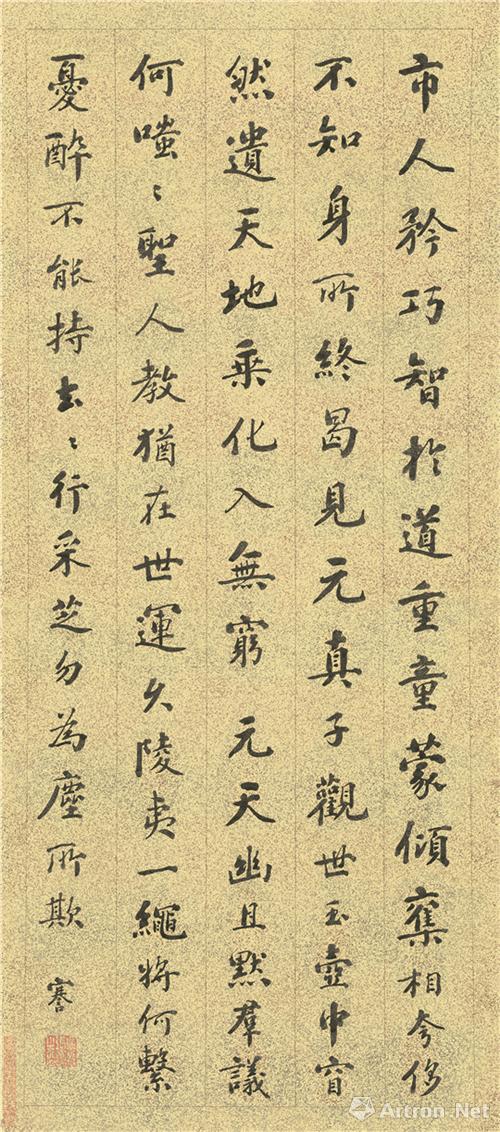 市人矜巧智於道重童蒙傾奪相夸侈
不知身所終曷見元真子觀世玉壺中窅
然遺天地乘化入無窮 元天幽且默羣議
何嗤〻聖人教猶在世運久陵夷一繩將何繫
憂醉不能持去〻行采芝勿為塵所欺 謇
Artron.Net